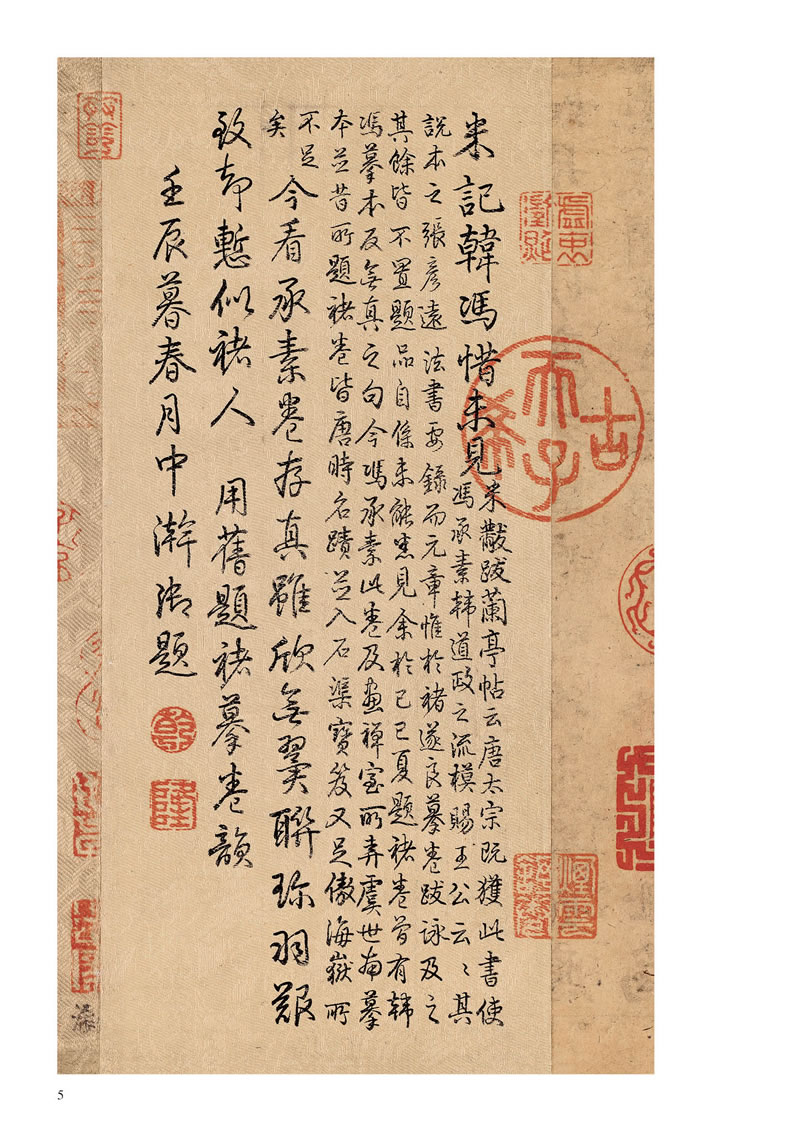 米記韓馮惜未見
米黻跋蘭亭帖云唐太宗既獲此書使
馮承素韓道政之流模賜王公云〻其
說本之張彥遠法書要錄而元章惟於褚遂良摹卷跋詠及之
其餘皆不置題品自係未能悉見余於己巳夏題褚卷曾有韓
馮摹本反無真之句今馮承素此卷及畫禪室所弆虞世南摹
本並昔所題褚卷皆唐時名蹟並入石渠寶笈又足傲海嶽所
不足
矣
今看承素卷存真雖欣無翼聯珎羽艱
致却慙似褚人 用舊題褚摹卷韻
壬辰暮春月中澣御題
乾
隆
古希天子
5